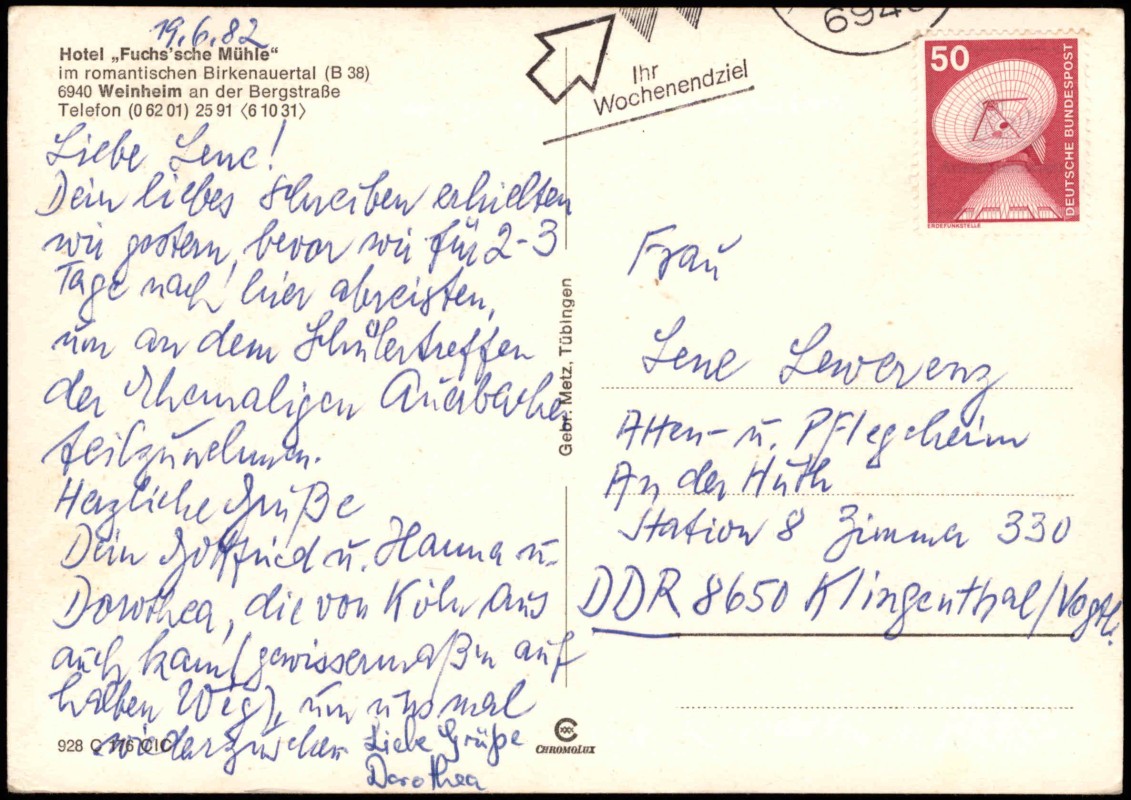 19.6.82
Hotel „Fuchs'sche Mühle“
im romantischen Birkenauertal (B 38)
6940 Weinheim an der Bergstraße
Telefon (0 62 01) 25 91 ⟨6 10 31⟩
Liebe Lene!
Dein liebes Schreiben erhielten
wir gestern, bevor wir für 2-3
Tage nach hier abreisten,
um an dem Schülertreffen
der Ehemaligen Auerbacher
teilzunehmen.
Herzliche Grüße
Dein Gottfried u. Hanna u.
Dorothea, die von Köln aus
auch kam (gewissermaßen auf
halben Weg), um uns mal
wiederzusehen
Liebe Grüße
Dorothea
928 C 176 CIC
Gebr. Metz, Tübingen
CHROMOLUX
Ihr
Wochenendziel
6940
50
DEUTSCHE BUNDESPOST
ERDEFUNKSTELLE
Frau
Lene Lewerenz
Alten- u. Pflegeheim
An der Huth
Station 8 Zimmer 330
DDR 8650 Klingenthal/Vogtl.